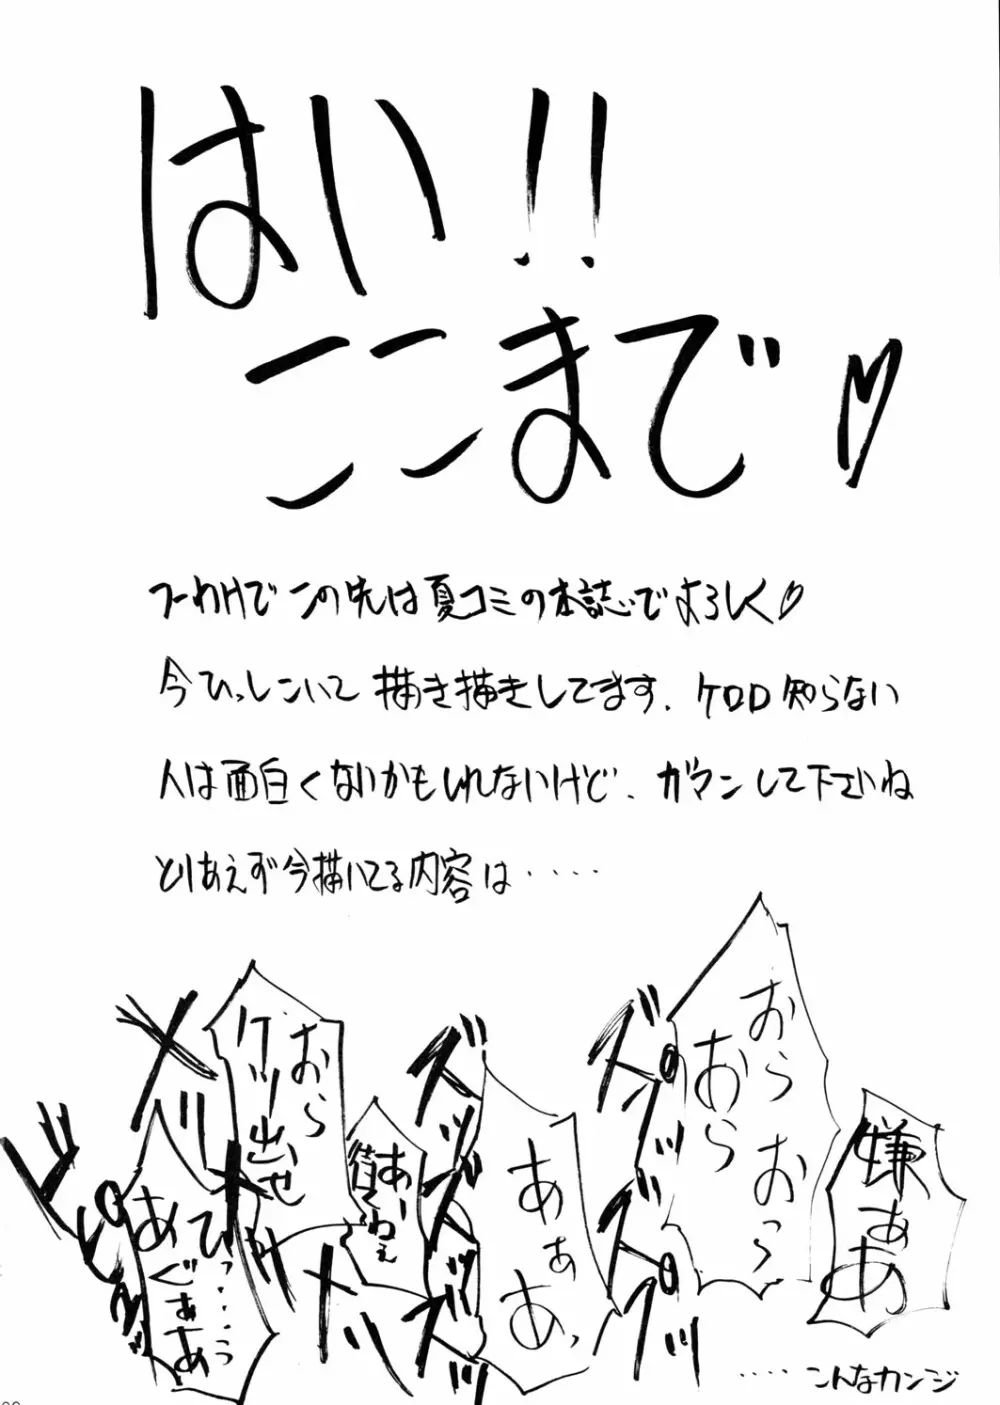 はい!!
ここまで♡
つーわけでこの先は夏コミの本誌でよろしく♡
今ひっしこいて描き描きしてます、ケロロ知らない
人は面白くないかもしれないけど、ガマンして下さいね
とりあえず今描いてる内容は・・・・
おらおらおっ
おら
嫌ぁあ
ズパンッ
ズパンッ
あぁあっ
ズッ
ズズズッ
あー
してねぇ
おら
ケリ出せ
ひっ‥‥うっ
あぐぁあ
・・・・こんなカンジ